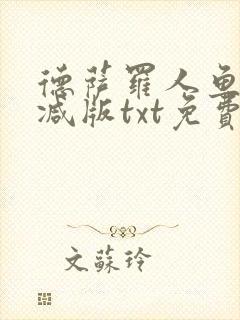 德薩羅人魚
减版txt免費
文蘇玲